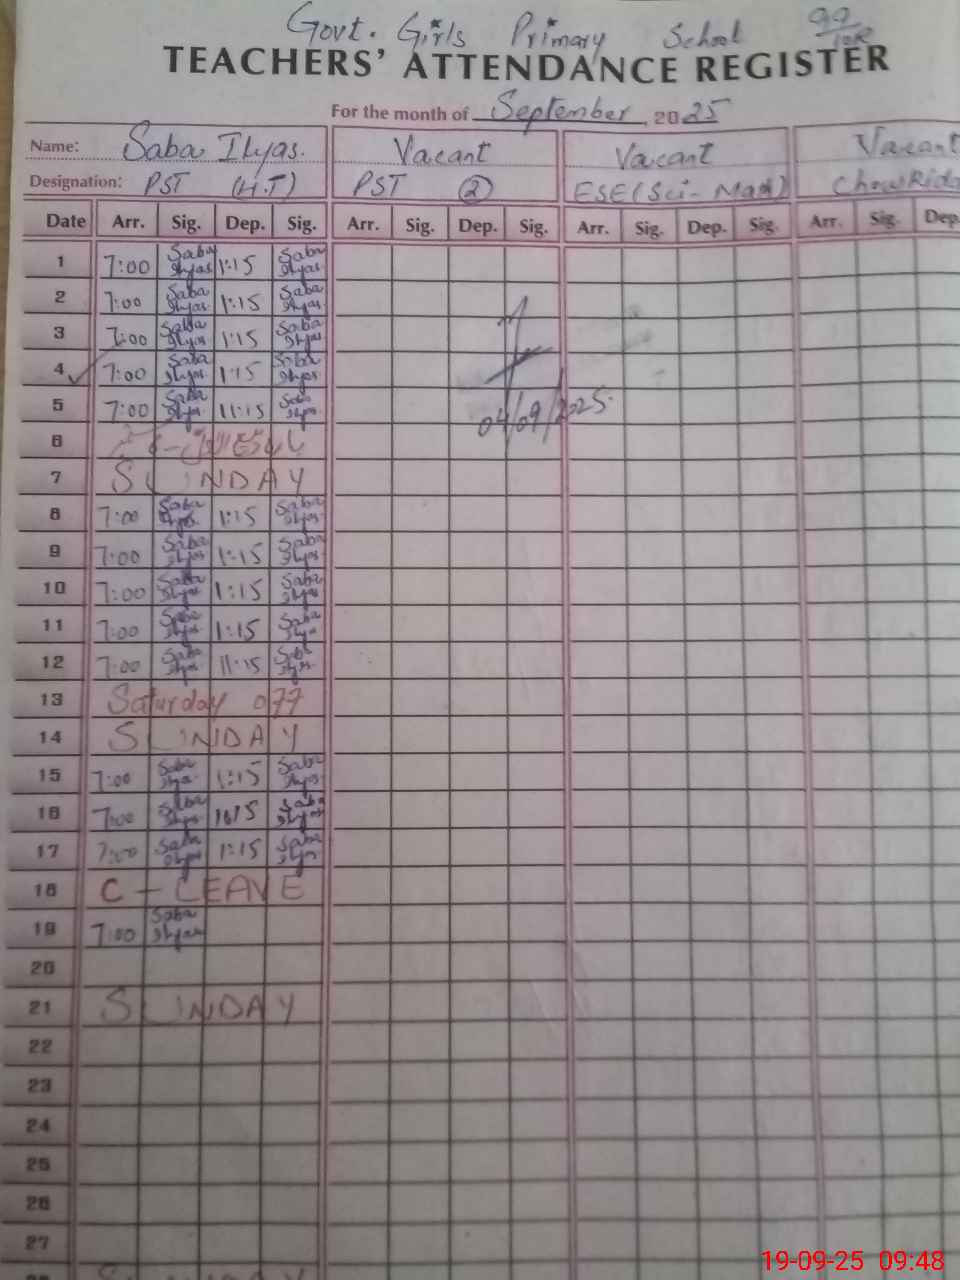 Govt. Girls Primary School 99/10R
TEACHERS' ATTENDANCE REGISTER
For the month of September, 2025
Name: Saba Ilyas. Vacant Vacant Vacant
Designation: PST (H.T) PST (2) ESE (Sci-Math) Chowkida
Date Arr. Sig. Dep. Sig. Arr. Sig. Dep. Sig. Arr. Sig. Dep. Sig. Arr. Sig. Dep.
1 7:00 Saba Ilyas 1:15 Saba Ilyas
2 7:00 Saba Ilyas 1:15 Saba Ilyas
3 7:00 Saba Ilyas 1:15 Saba Ilyas
4 7:00 Saba Ilyas 1:15 Saba Ilyas
5 7:00 Saba Ilyas 11:15 Saba Ilyas
04/09/2025
6
7 SUNDAY
8 7:00 Saba Ilyas 1:15 Saba Ilyas
9 7:00 Saba Ilyas 1:15 Saba Ilyas
10 7:00 Saba Ilyas 1:15 Saba Ilyas
11 7:00 Saba Ilyas 1:15 Saba Ilyas
12 7:00 Saba Ilyas 11:15 Saba Ilyas
13 Saturday off
14 SUNDAY
15 7:00 Saba Ilyas 1:15 Saba Ilyas
16 7:00 Saba Ilyas 1:15 Saba Ilyas
17 7:00 Saba Ilyas 1:15 Saba Ilyas
18 C-LEAVE
19 7:00 Saba Ilyas
20
21 SUNDAY
22
23
24
25
26
27
19-09-25 09:48